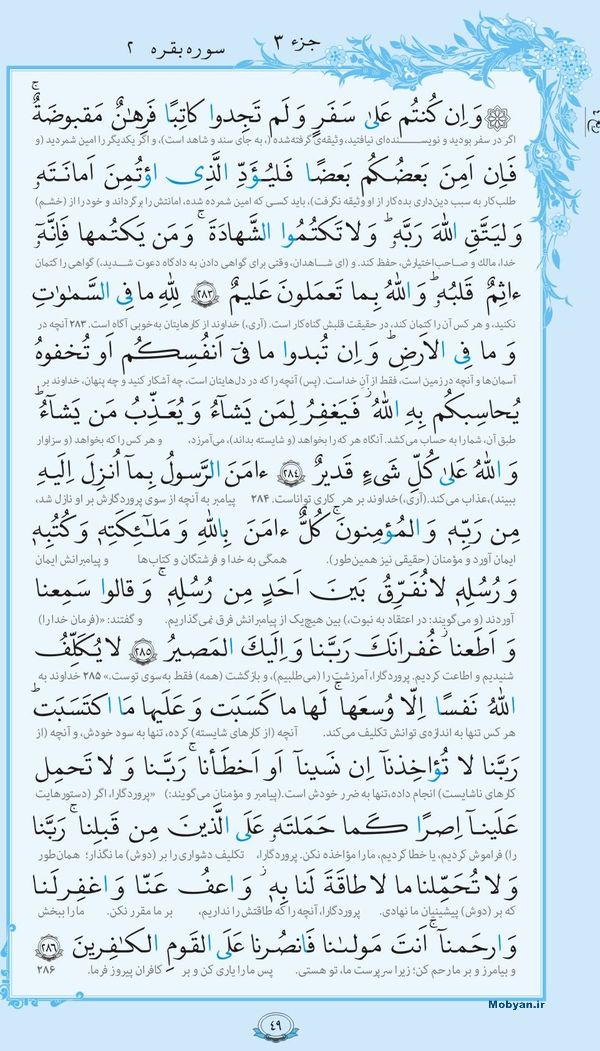 جزء ۳
سوره بقره ۲
وَ اِن كُنتُم عَلىٰ سَفَرٍ وَ لَم تَجِدوا كاتِبًا فَرِهٰنٌ مَقبوضَةٌ ۖ
اگر در سفر بودید و نویسنده‌ای نیافتید، وثیقه‌ی گرفته‌شده (، به جای سند و شاهد است)، و اگر یکدیگر را امین شمردید (و
فَاِن اَمِنَ بَعضُكُم بَعضًا فَليُؤَدِّ الَّذِى اؤتُمِنَ اَمانَتَهٗ
طلب‌کار به سبب دین‌داری بده‌کار از او وثیقه نگرفت)، باید کسی که امین شمرده شده، امانتش را برگرداند و خود را از (خشم)
وَ ليَتَّقِ اللهَ رَبَّهٗ ۗ وَ لا تَكتُمُوا الشَّهادَةَ ۚ وَ مَن يَكتُمها فَاِنَّهٗ
خدا، مالک و صاحب‌اختیارش، حفظ کند. و (ای شاهدان، وقتی برای گواهی دادن به دادگاه دعوت شدید،) گواهی را کتمان
ءاثِمٌ قَلبُهٗ ۗ وَ اللهُ بِما تَعمَلونَ عَليمٌ ﴿٢٨٣﴾ لِلّٰهِ ما فِى السَّمٰوٰتِ
نکنید، و هر کس آن را کتمان کند، در حقیقت قلبش گناه‌کار است. (آری،) خداوند از کارهایتان به‌خوبی آگاه است. ۲۸۳ آنچه در
وَ ما فِى الاَرضِ ۗ وَ اِن تُبدوا ما فىٓ اَنفُسِكُم اَو تُخفوهُ
آسمان‌ها و آنچه در زمین است، فقط از آنِ خداست. (پس) آنچه را که در دل‌هایتان است، چه آشکار کنید و چه پنهان، خداوند بر
يُحاسِبكُم بِهِ اللهُ ۖ فَيَغفِرُ لِمَن يَشآءُ وَ يُعَذِّبُ مَن يَشآءُ ۗ
طبق آن، شما را به حساب می‌کشد. آنگاه هر که را بخواهد (و شایسته بداند)، می‌آمرزد، و هر کس را که بخواهد (و سزاوار
وَ اللهُ عَلىٰ كُلِّ شَىءٍ قَديرٌ ﴿٢٨٤﴾ ءامَنَ الرَّسولُ بِمآ اُنزِلَ اِلَيهِ
ببیند)، عذاب می‌کند. (آری،) خداوند بر هر کاری تواناست. ۲۸۴ پیامبر به آنچه از سوی پروردگارش بر او نازل شد،
مِن رَبِّهٖ وَ المُؤمِنونَ ۚ كُلٌّ ءامَنَ بِاللهِ وَ مَلٰٓئِكَتِهٖ وَ كُتُبِهٖ
ایمان آورد و مؤمنان (حقیقی نیز همین‌طور). همگی به خدا و فرشتگان و کتاب‌ها و پیامبرانش ایمان
وَ رُسُلِهٖ لا نُفَرِّقُ بَينَ اَحَدٍ مِن رُسُلِهٖ ۚ وَ قالوا سَمِعنا
آوردند (و می‌گویند: در اعتقاد به نبوت،) بین هیچ‌یک از پیامبرانش فرق نمی‌گذاریم. و گفتند: «(فرمان خدا را)
وَ اَطَعنا ۖ غُفرانَكَ رَبَّنا وَ اِلَيكَ المَصيرُ ﴿٢٨٥﴾ لا يُكَلِّفُ
شنیدیم و اطاعت کردیم. پروردگارا، آمرزشت را (می‌طلبیم)، و بازگشت (همه) فقط به‌سوی توست.» ۲۸۵ خداوند به
اللهُ نَفسًا اِلّا وُسعَها ۚ لَها ما كَسَبَت وَ عَلَيها مَا اكتَسَبَت ۗ
هر کس تنها به اندازه‌ی توانش تکلیف می‌کند. آنچه (از کارهای شایسته) کرده، تنها به سود خودش، و آنچه (از
رَبَّنا لا تُؤاخِذنآ اِن نَسينآ اَو اَخطَأنا ۚ رَبَّنا وَ لا تَحمِل
کارهای ناشایست) انجام داده، تنها به ضرر خودش است. (پیامبر و مؤمنان می‌گویند:) «پروردگارا، اگر (دستورهایت
عَلَينآ اِصرًا كَما حَمَلتَهٗ عَلَى الَّذينَ مِن قَبلِنا ۚ رَبَّنا
را) فراموش کردیم، یا خطا کردیم، ما را مؤاخذه نکن. پروردگارا، تکلیف دشواری را بر (دوش) ما نگذار؛ همان‌طور
وَ لا تُحَمِّلنا ما لا طاقَةَ لَنا بِهٖ ۖ وَ اعفُ عَنّا وَ اغفِر لَنا
که بر (دوش) پیشینیان ما نهادی. پروردگارا، آنچه را که طاقتش را نداریم، بر ما مقرر نکن. ما را ببخش
وَ ارحَمنآ ۚ اَنتَ مَولىٰنا فَانصُرنا عَلَى القَومِ الكٰفِرينَ ﴿٢٨٦﴾
و بیامرز و بر ما رحم کن؛ زیرا سرپرست ما، تو هستی. پس ما را یاری کن و بر کافران پیروز فرما. ۲۸۶
Mobyan.ir
۴۹